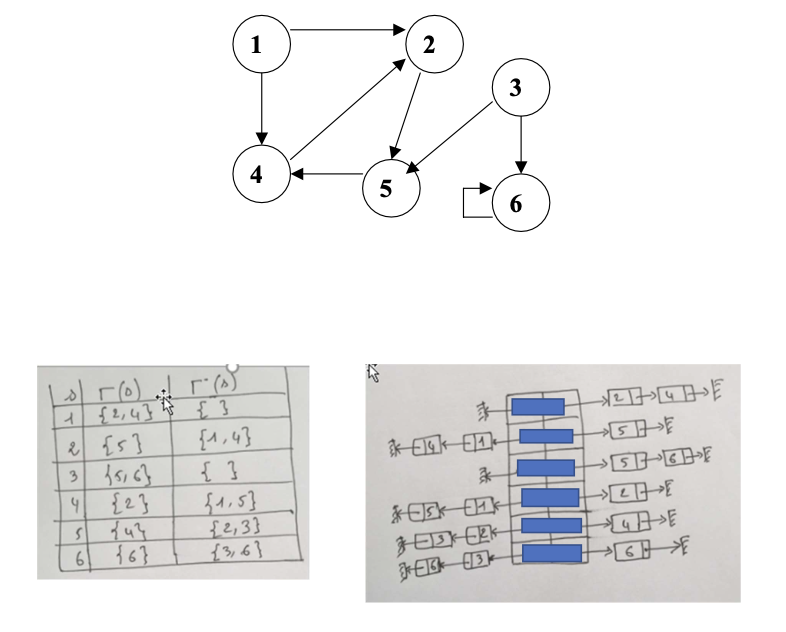 1
2
3
4
5
6
s Γ(s) Γ⁻(s)
1 {2,4} { }
2 {5} {1,4}
3 {5,6} { }
4 {2} {1,5}
5 {4} {2,3}
6 {6} {3,6}
2 4
4 1 5
5 6
5 1 2
3 2 4
6 3 6